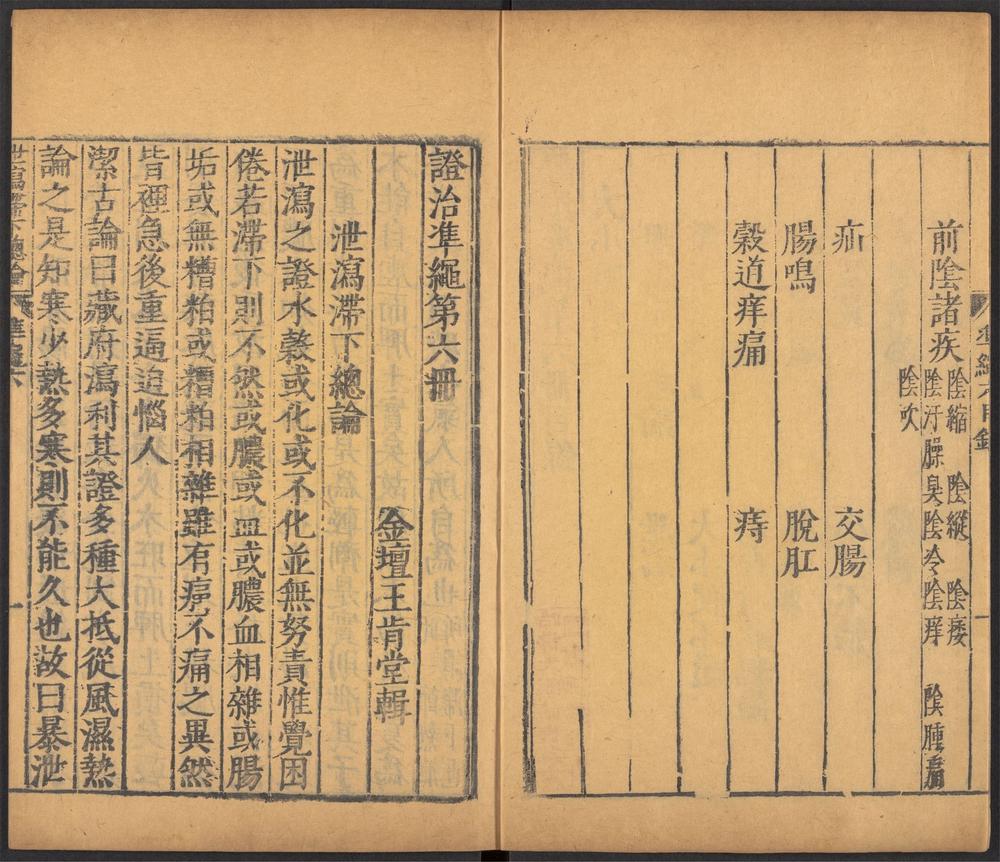 前陰諸疾 陰縮 陰縱 陰痿
陰汗臊臭陰冷陰痒 陰腫痛
陰吹
疝 交腸
腸鳴 脫肛
穀道痒痛 痔
證治準繩第六冊
金壇王肯堂輯
泄瀉滯下總論
泄瀉之證水穀或化或不化並無努責惟覺困
倦若滯下則不然或膿或血或膿血相雜或腸
垢或無糟粕或糟粕相雜雖有痛不痛之異然
皆裡急後重逼迫惱人
潔古論曰藏府瀉利其證多種大抵從風濕熱
論之是知寒少熱多寒則不能久也故曰暴泄